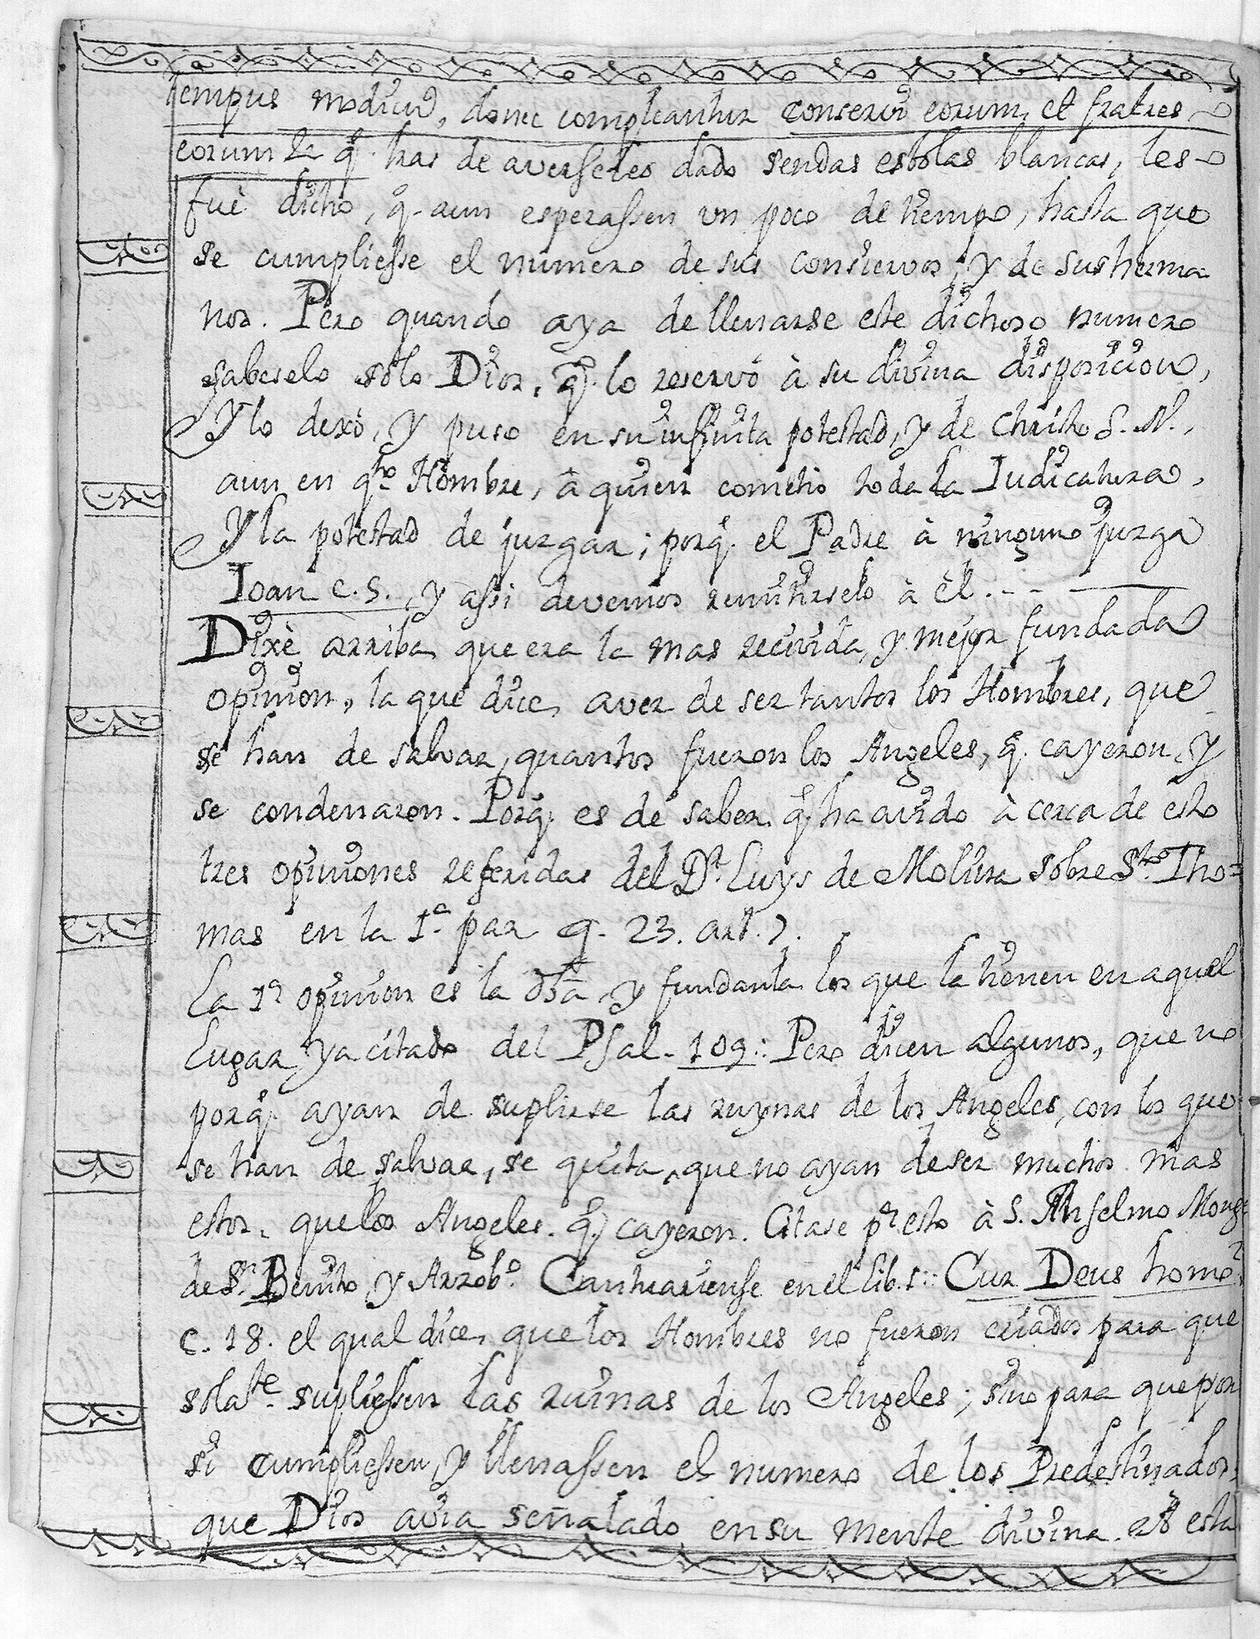 tempus modicũ, donec compleantur conservi eorum, et fratres
eorum &c q̃. tras de averseles dado sendas estolas blancas, les
fuè dicho, q̃. aun esperassen vn poco de tiempo, hasta que
se cumpliesse el numero de sus consiervos, y de sus herma
nos. Pero quando aya de llenarse este dichoso numero
saberelo solo Dios, q̃. lo reservò à su divina disposicion,
Y lo dexò, y puso en su infinita potestad, y de Christo S. N.,
aun en qto. Hombre, â quien cometio toda la Iudicatura,
Y la potestad de juzgar; porq̃. el Padre à ninguno juzga
Ioan c. 5., y assi devemos remitirselo à èl. - - -
Dixè arriba, que era la mas recivida, y mejor fundada
opinion, la que dice, aver de ser tantos los Hombres, que
se han de salvar, quantos fueron los Angeles, q̃. cayeron, y
se condenaron. Porq̃. es de saber, q̃. ha avido à cerca de esto
tres opiniones referidas del Dr. Luys de Molina sobre Sto. Tho=
mas en la 1a. par q. 23. art. 7.
La 1a opinion es la dha, y fundanla los que la tienen en aquel
Lugar ya citado del Psal. 109:: Pero dicen algunos, que no
porq̃. ayan de suplirse las ruynas de los Angeles, con los que
se han de salvar, se quita, que no ayan de ser muchos mas
estos, que los Angeles. q̃. cayeron. Citase pa esto à S. Anselmo Monge
de Sn. Benito y Arzobo. Cantuariense en el lib. 1:: Cur Deus homo
c. 18. el qual dice, que los Hombres no fueron criados para que
solate. supliessen las ruinas de los Angeles; sino para que por
si cumpliessen, y llenassen el numero de los Predestinados,
que Dios avia señalado en su mente divina. esta